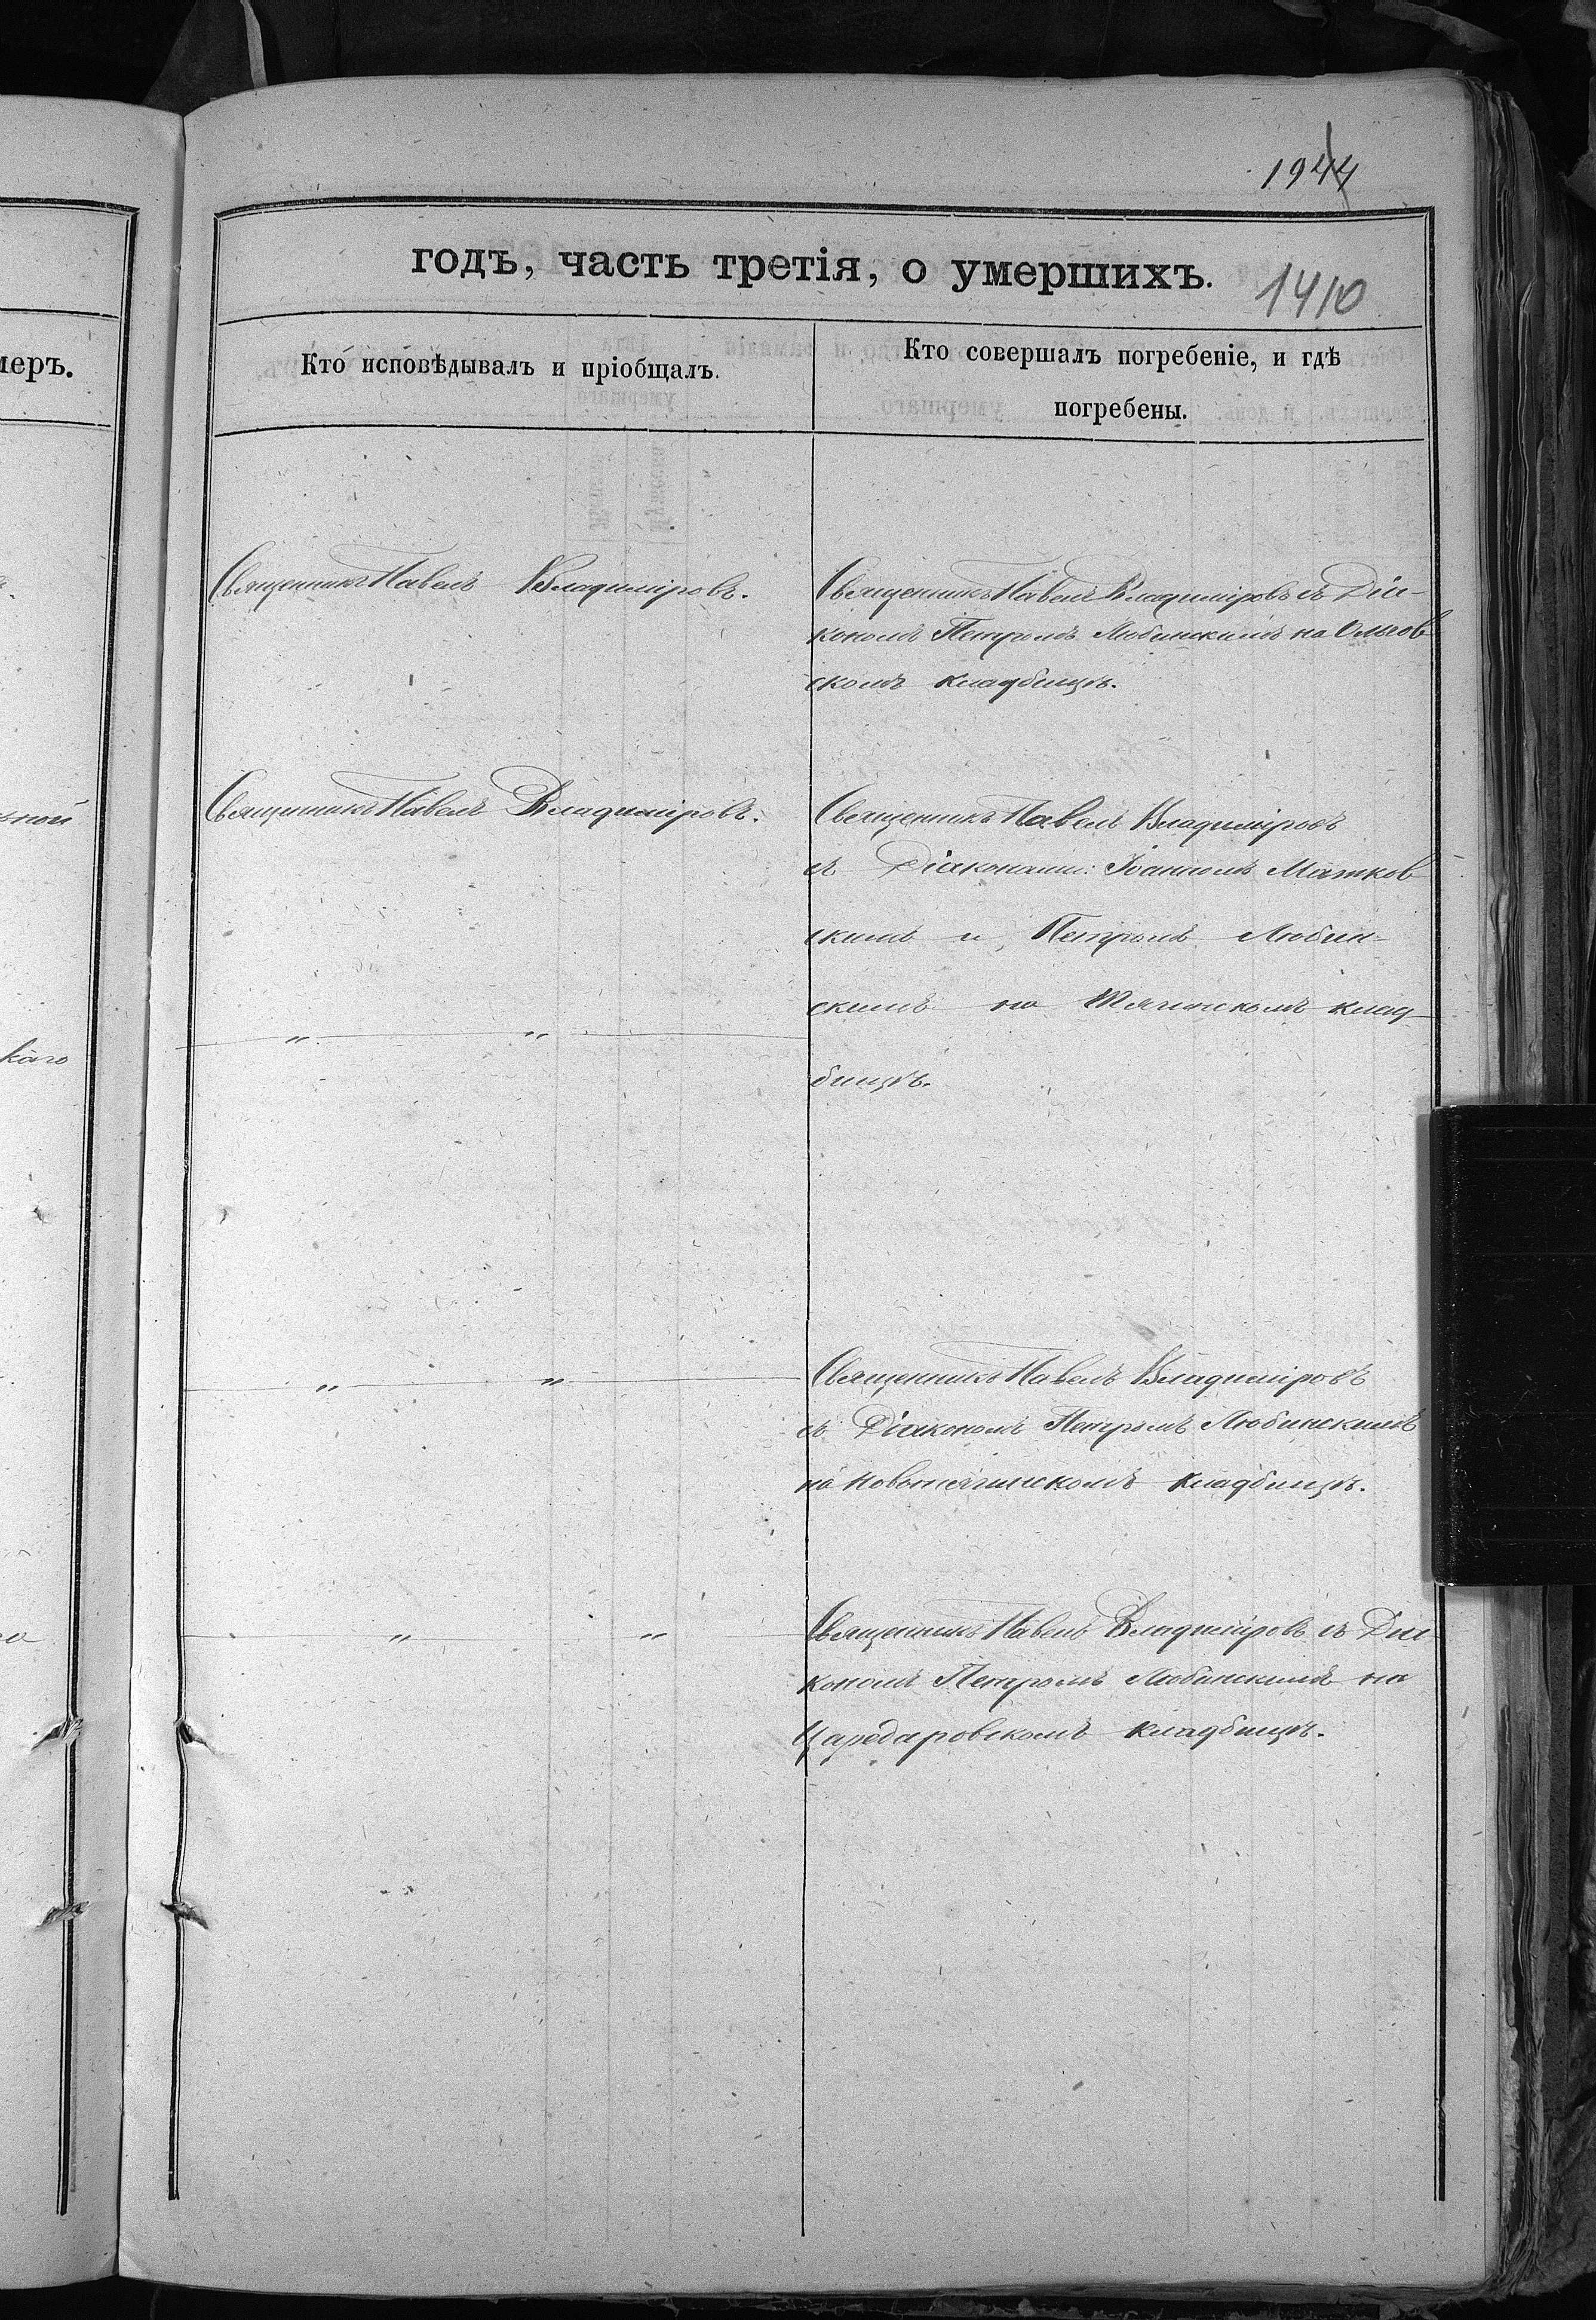 1944
годъ, часть третія, о умершихъ.
1410
меръ.
Кто исповѣдывалъ и пріобщалъ.
Кто совершалъ погребеніе, и гдѣ
погребены.
Священникъ Павелъ Владиміровъ.
Священникъ Павелъ Владиміровъ съ Діа-
кономъ Петромъ Любинскимъ на Ольгов
скомъ кладбищѣ.
ьной
Священникъ Павелъ Владиміровъ.
Священникъ Павелъ Владиміровъ
съ Діаконами: Іоанномъ Матков
скимъ и Петромъ Любин-
скимъ на Тягинскомъ клад-
каго
" "
бищѣ.
" "
Священникъ Павелъ Владиміровъ
съ Діакономъ Петромъ Любинскимъ
на Новотягинскомъ кладбищѣ.
" "
Священникъ Павелъ Владиміровъ съ Діа
кономъ Петромъ Любинскимъ на
Царедаровскомъ кладбищѣ.